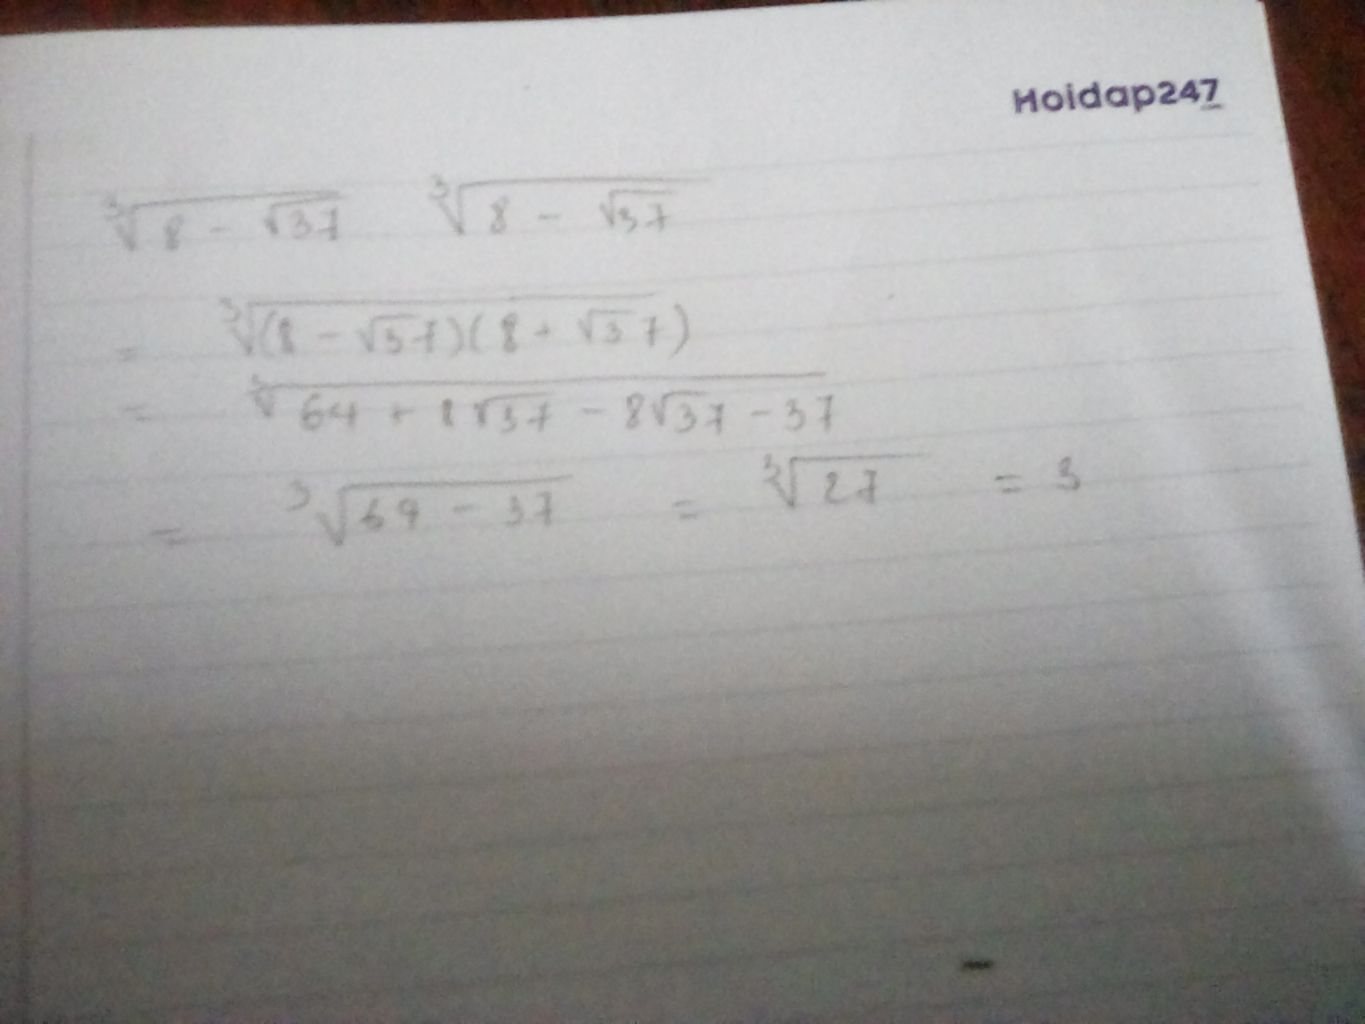 Hoidap247
∛(8 - √37) ∛(8 - √37)
= ∛((8 - √37)(8 + √37))
= ∛(64 + 8√37 - 8√37 - 37)
= ∛(64 - 37) = ∛27 = 3